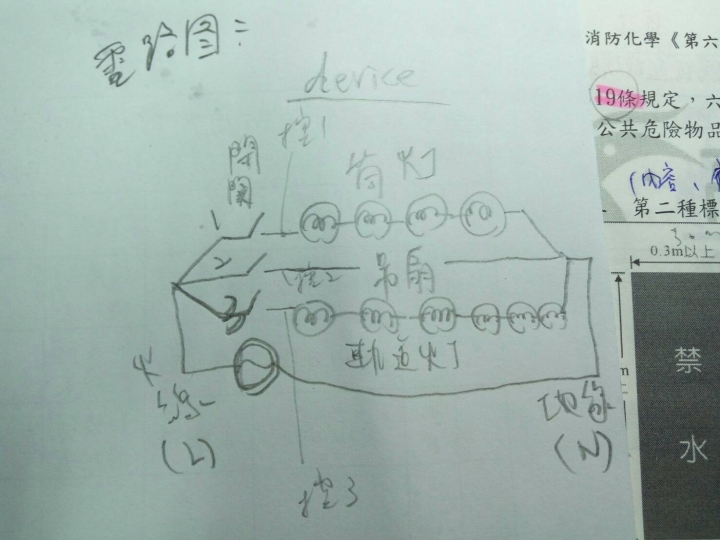 電路图:
device
控1
開
關
筒灯
1
2
控2
吊扇
3
軌道灯
火
線
(L)
地線
(N)
控3
消防化學《第六
19條規定，六
公共危險物品
(內容、
第二種標
0.3m以上
m
上
禁
水